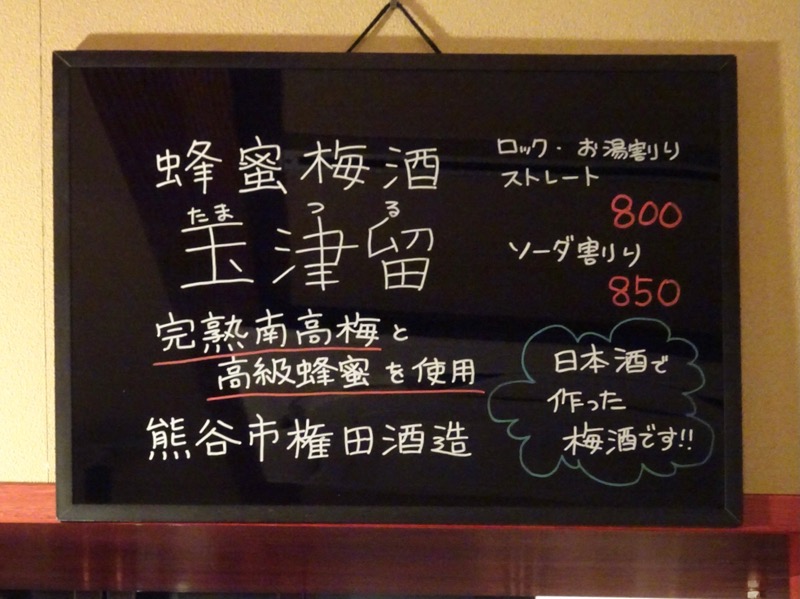 蜂蜜梅酒
たまつる
玉津留
完熟南高梅と
高級蜂蜜を使用
熊谷市権田酒造
ロック・お湯割り
ストレート
800
ソーダ割り
850
日本酒で
作った
梅酒です!!